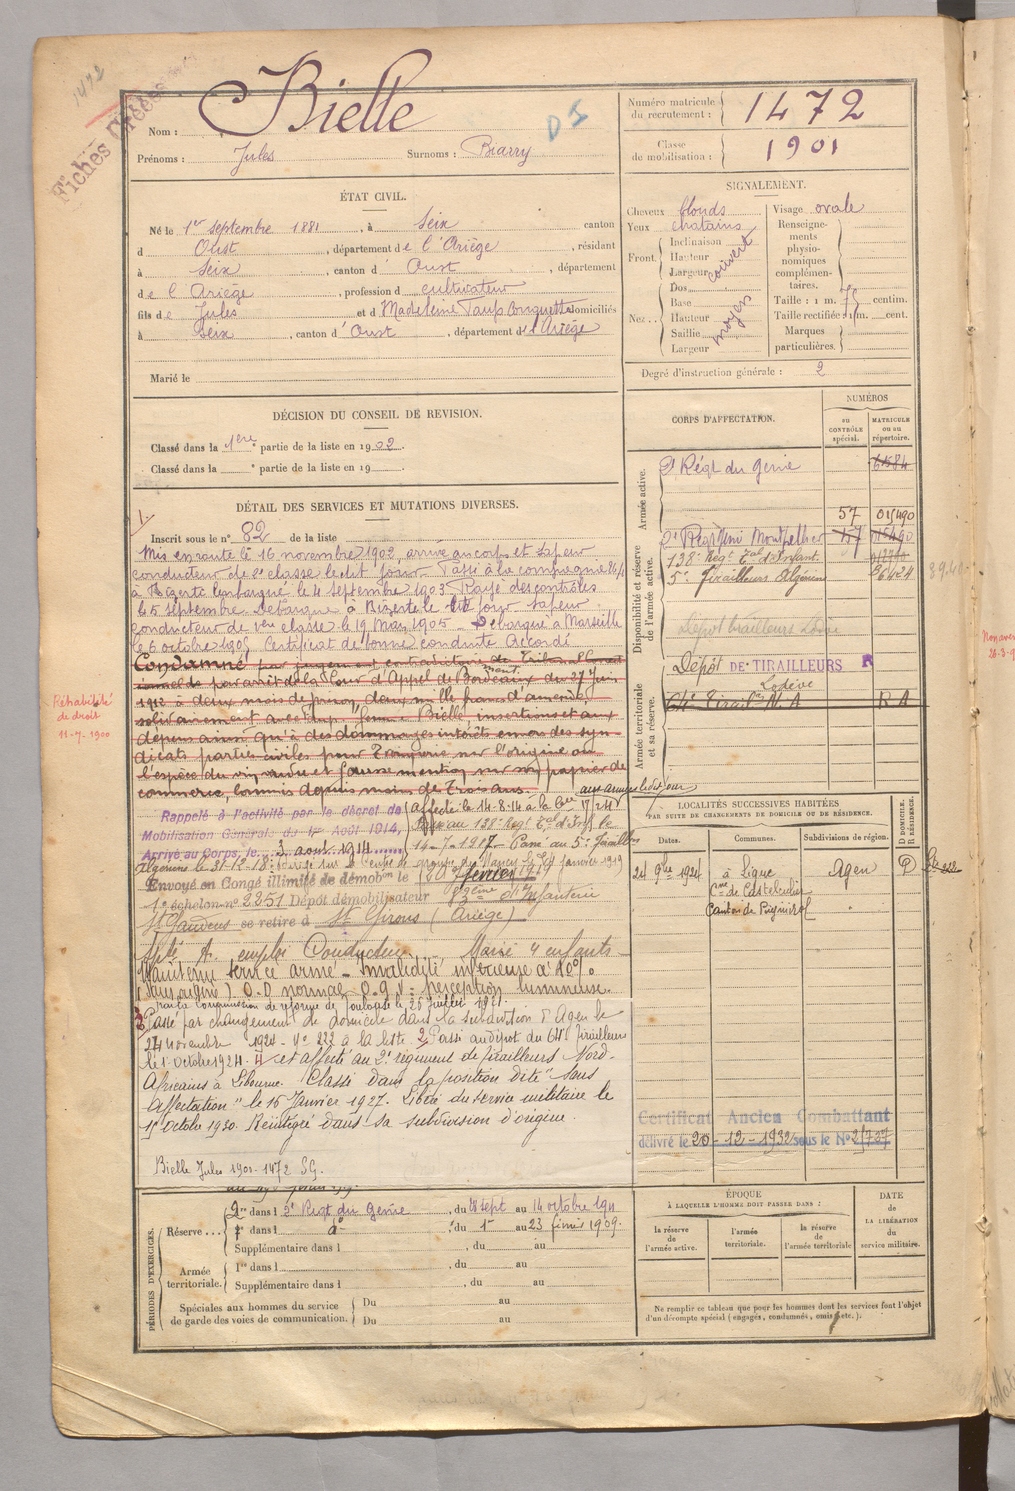 1472
Fiches créées
Bielle
Nom :
D I
Prénoms : Jules Surnoms : Biarry
Numéro matricule du recrutement : 1472
Classe de mobilisation : 1901
ÉTAT CIVIL.
Né le 1er septembre 1881, à Seix canton
d Oust, département de l'Ariège, résidant
à Seix, canton d'Oust, département
de l'Ariège, profession de cultivateur
fils de Jules et d Madeleine Taup Songuette domiciliés
à Seix, canton d'Oust, département de l'Ariège
Marié le
SIGNALEMENT.
Cheveux blonds Visage ovale
Yeux chatains
Front. Inclinaison Hauteur Largeur couvert
Nez.. Dos Base Hauteur Saillie Largeur moyen
Renseignements physionomiques complémentaires.
Taille : 1 m. centim.
Taille rectifiée : 1 m. cent.
Marques particulières.
Degré d'instruction générale : 2
DÉCISION DU CONSEIL DE REVISION.
Classé dans la 1ère partie de la liste en 1902.
Classé dans la ° partie de la liste en 19
CORPS D'AFFECTATION.
NUMÉROS
AU CONTRÔLE spécial.
MATRICULE ou au répertoire.
Armée active.
2e Régt du Génie 6584
57 015490
Disponibilité et réserve de l'armée active.
2e Régt Génie Montpellier 57 015490
138e Regt Tal d'Infant.
5e Tirailleurs Algérien 26424
Dépôt tirailleurs Lodève
Armée territoriale et sa réserve.
Dépôt DE TIRAILLEURS R
Lodève
64e Tirail. N. A R A
DÉTAIL DES SERVICES ET MUTATIONS DIVERSES.
1.
Inscrit sous le n° 82 de la liste
Mis en route le 16 novembre 1902, arrivé au corps et sapeur
conducteur de 2e classe le dit jour. Passé à la compagnie 26/
à Bizerte Embarqué le 4 septembre 1903. Rayé des contrôles
le 5 septembre. Débarqué à Bizerte le dit jour sapeur
conducteur de 1ère classe le 19 Mai 1905. Débarqué à Marseille
le 6 octobre 1905 Certificat de bonne conduite Accordé
Condamné par jugement contradictoire du Tribunal Correct
ionnel de par arrêt de la Cour d'Appel de Bordeaux du 27 Juin
1912 à deux mois de prison, deux mille francs d'amende,
solidairement avec dame Bielle, insertions et aux
dépens ainsi qu'à des dommages intérêts envers des syn
dicats parties civiles pour Tromperie sur l'origine ou
l'espèce du vin vendu et fausse mention sur son papier de
commerce, commis depuis moins de Trois ans.
Réhabilité de droit
Rappelé à l'activité par le décret de
Mobilisation Générale du 1er Août 1914,
Arrivé au Corps, le 3 août 1914
aux armées le dit jour
Affecté le 14-8-14 à la Cie 17/24
Passé au 138e Regt Tal d'Inf le
14-7-1917 Passé au 5e Tirailleurs
Algériens le 31-12-18
janvier 1919
Envoyé en Congé illimité de démobon le 20 février 1919
1er échelon no 2251 Dépôt démobilisateur d'Infanterie
St Gaudens se retire à St Girons (Ariège)
Apte A. emploi Conducteur. Marié 4 enfants
Maintenu service armé - Invalidité inférieure à 10%
(sans origine) O.D normal O.g. V = perception lumineuse.
par la Commission de réforme de Toulouse le 26 juillet 1921.
3 Passé par changement de domicile dans la subdivision d'Agen le
24 novembre 1924 - No 222 à la liste. 2 Passé au dépôt du 64e Tirailleurs
le 1 octobre 1924. 4 et affecté au 2e régiment de Tirailleurs Nord-
Africains à Libourne. Classé dans la position dite "sans
Affectation" le 15 Janvier 1927. Libéré du service militaire le
octobre 1930. Réintégré dans sa subdivision d'origine.
Bielle Jules 1901-1472 S.G.
LOCALITÉS SUCCESSIVES HABITÉES
PAR SUITE DE CHANGEMENTS DE DOMICILE OU DE RÉSIDENCE.
Dates. Communes. Subdivisions de région. D DOMICILE. R RÉSIDENCE.
24 9bre 1924 à Ligue Agen D
Cne de Castelculier
Canton de Puymirol
Certificat Ancien Combattant
délivré le 20-12-1932 sous le No 21727
PÉRIODES D'EXERCICES.
Réserve... 1re dans l 2e Régt du Génie, du sept au 14 octobre 1911
2e dans l do du 1er au 23 février 1909.
Supplémentaire dans l , du au
Armée territoriale. 1re dans l , du au
Supplémentaire dans l , du au
Spéciales aux hommes du service de garde des voies de communication. Du au
Du au
ÉPOQUE
À LAQUELLE L'HOMME DOIT PASSER DANS :
la réserve de l'armée active.
l'armée territoriale.
la réserve de l'armée territoriale
DATE DE LA LIBÉRATION du service militaire.
Ne remplir ce tableau que pour les hommes dont les services font l'objet
d'un décompte spécial (engagés, condamnés, omis, etc.).